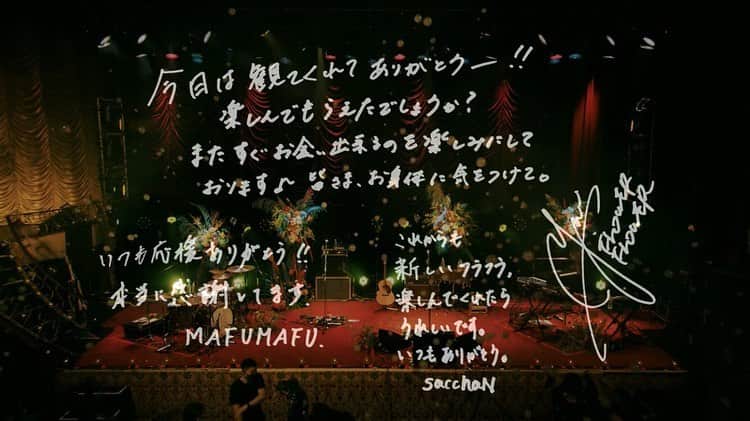 今日は観てくれてありがとうー!!
楽しんでもらえたでしょうか?
またすぐお会い出来るのを楽しみにして
おります♪ 皆さま、お身体に気をつけて。
FLOWER
FLOWER
いつも応援ありがとう!!
本当に感謝してます。
MAFUMAFU.
これからも
新しいフラフラ、
楽しんでくれたら
うれしいです。
いつもありがとう。
sacchaN